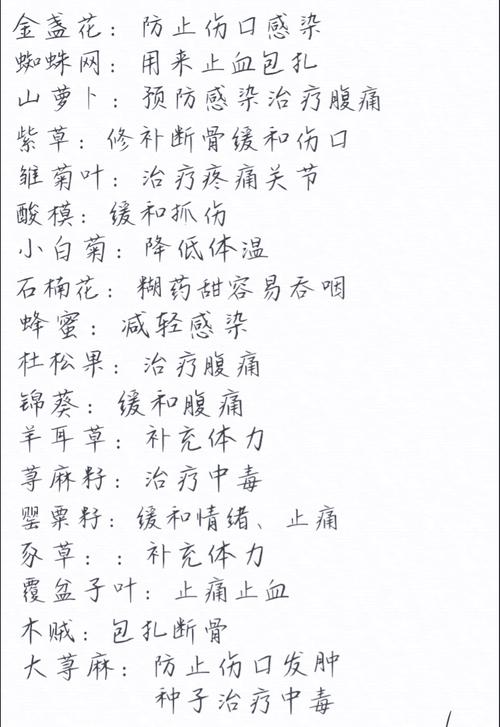 金盏花：防止伤口感染
蜘蛛网：用来止血包扎
山萝卜：预防感染治疗腹痛
紫草：修补断骨缓和伤口
雏菊叶：治疗疼痛关节
酸模：缓和抓伤
小白菊：降低体温
石楠花：糊药甜容易吞咽
蜂蜜：减轻感染
杜松果：治疗腹痛
锦葵：缓和腹痛
羊耳草：补充体力
荨麻籽：治疗中毒
罂粟籽：缓和情绪、止痛
豕草：：补充体力
覆盆子叶：止痛止血
木贼：包扎断骨
大荨麻：防止伤口发肿
种子治疗中毒